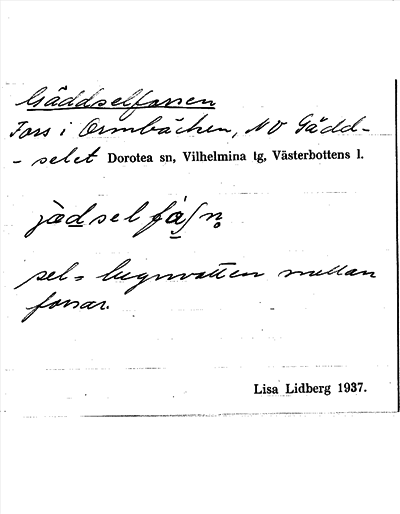 Gäddselforsen
Fors i Ormbäcken, NV Gädd-
- selet Dorotea sn, Vilhelmina tg, Västerbottens l.
sel = lugnvatten mellan
forsar.
Lisa Lidberg 1937.